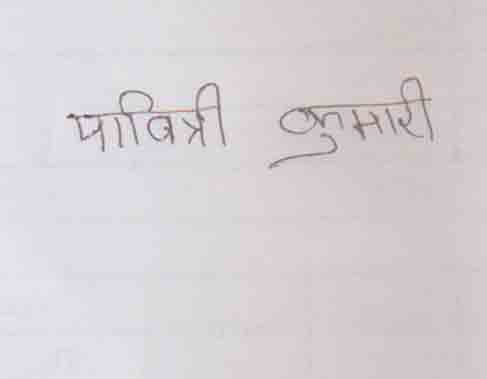 पाबित्री कुमारी